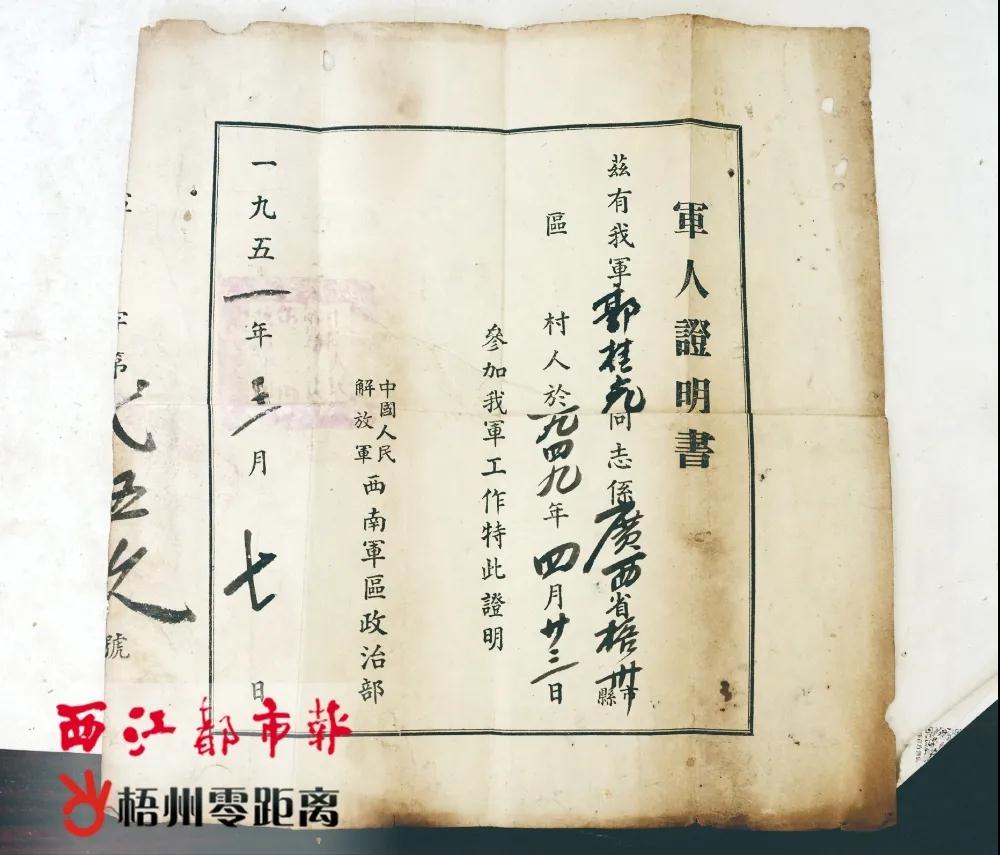 軍人證明書
茲有我軍郭桂九同志係廣西省梧州市縣
區 村人於一九四九年四月廿三日
參加我軍工作特此證明
中國人民
解放軍
西南軍區政治部
一九五一年三月七日
字第
五
號
西江都市報
梧州零距离